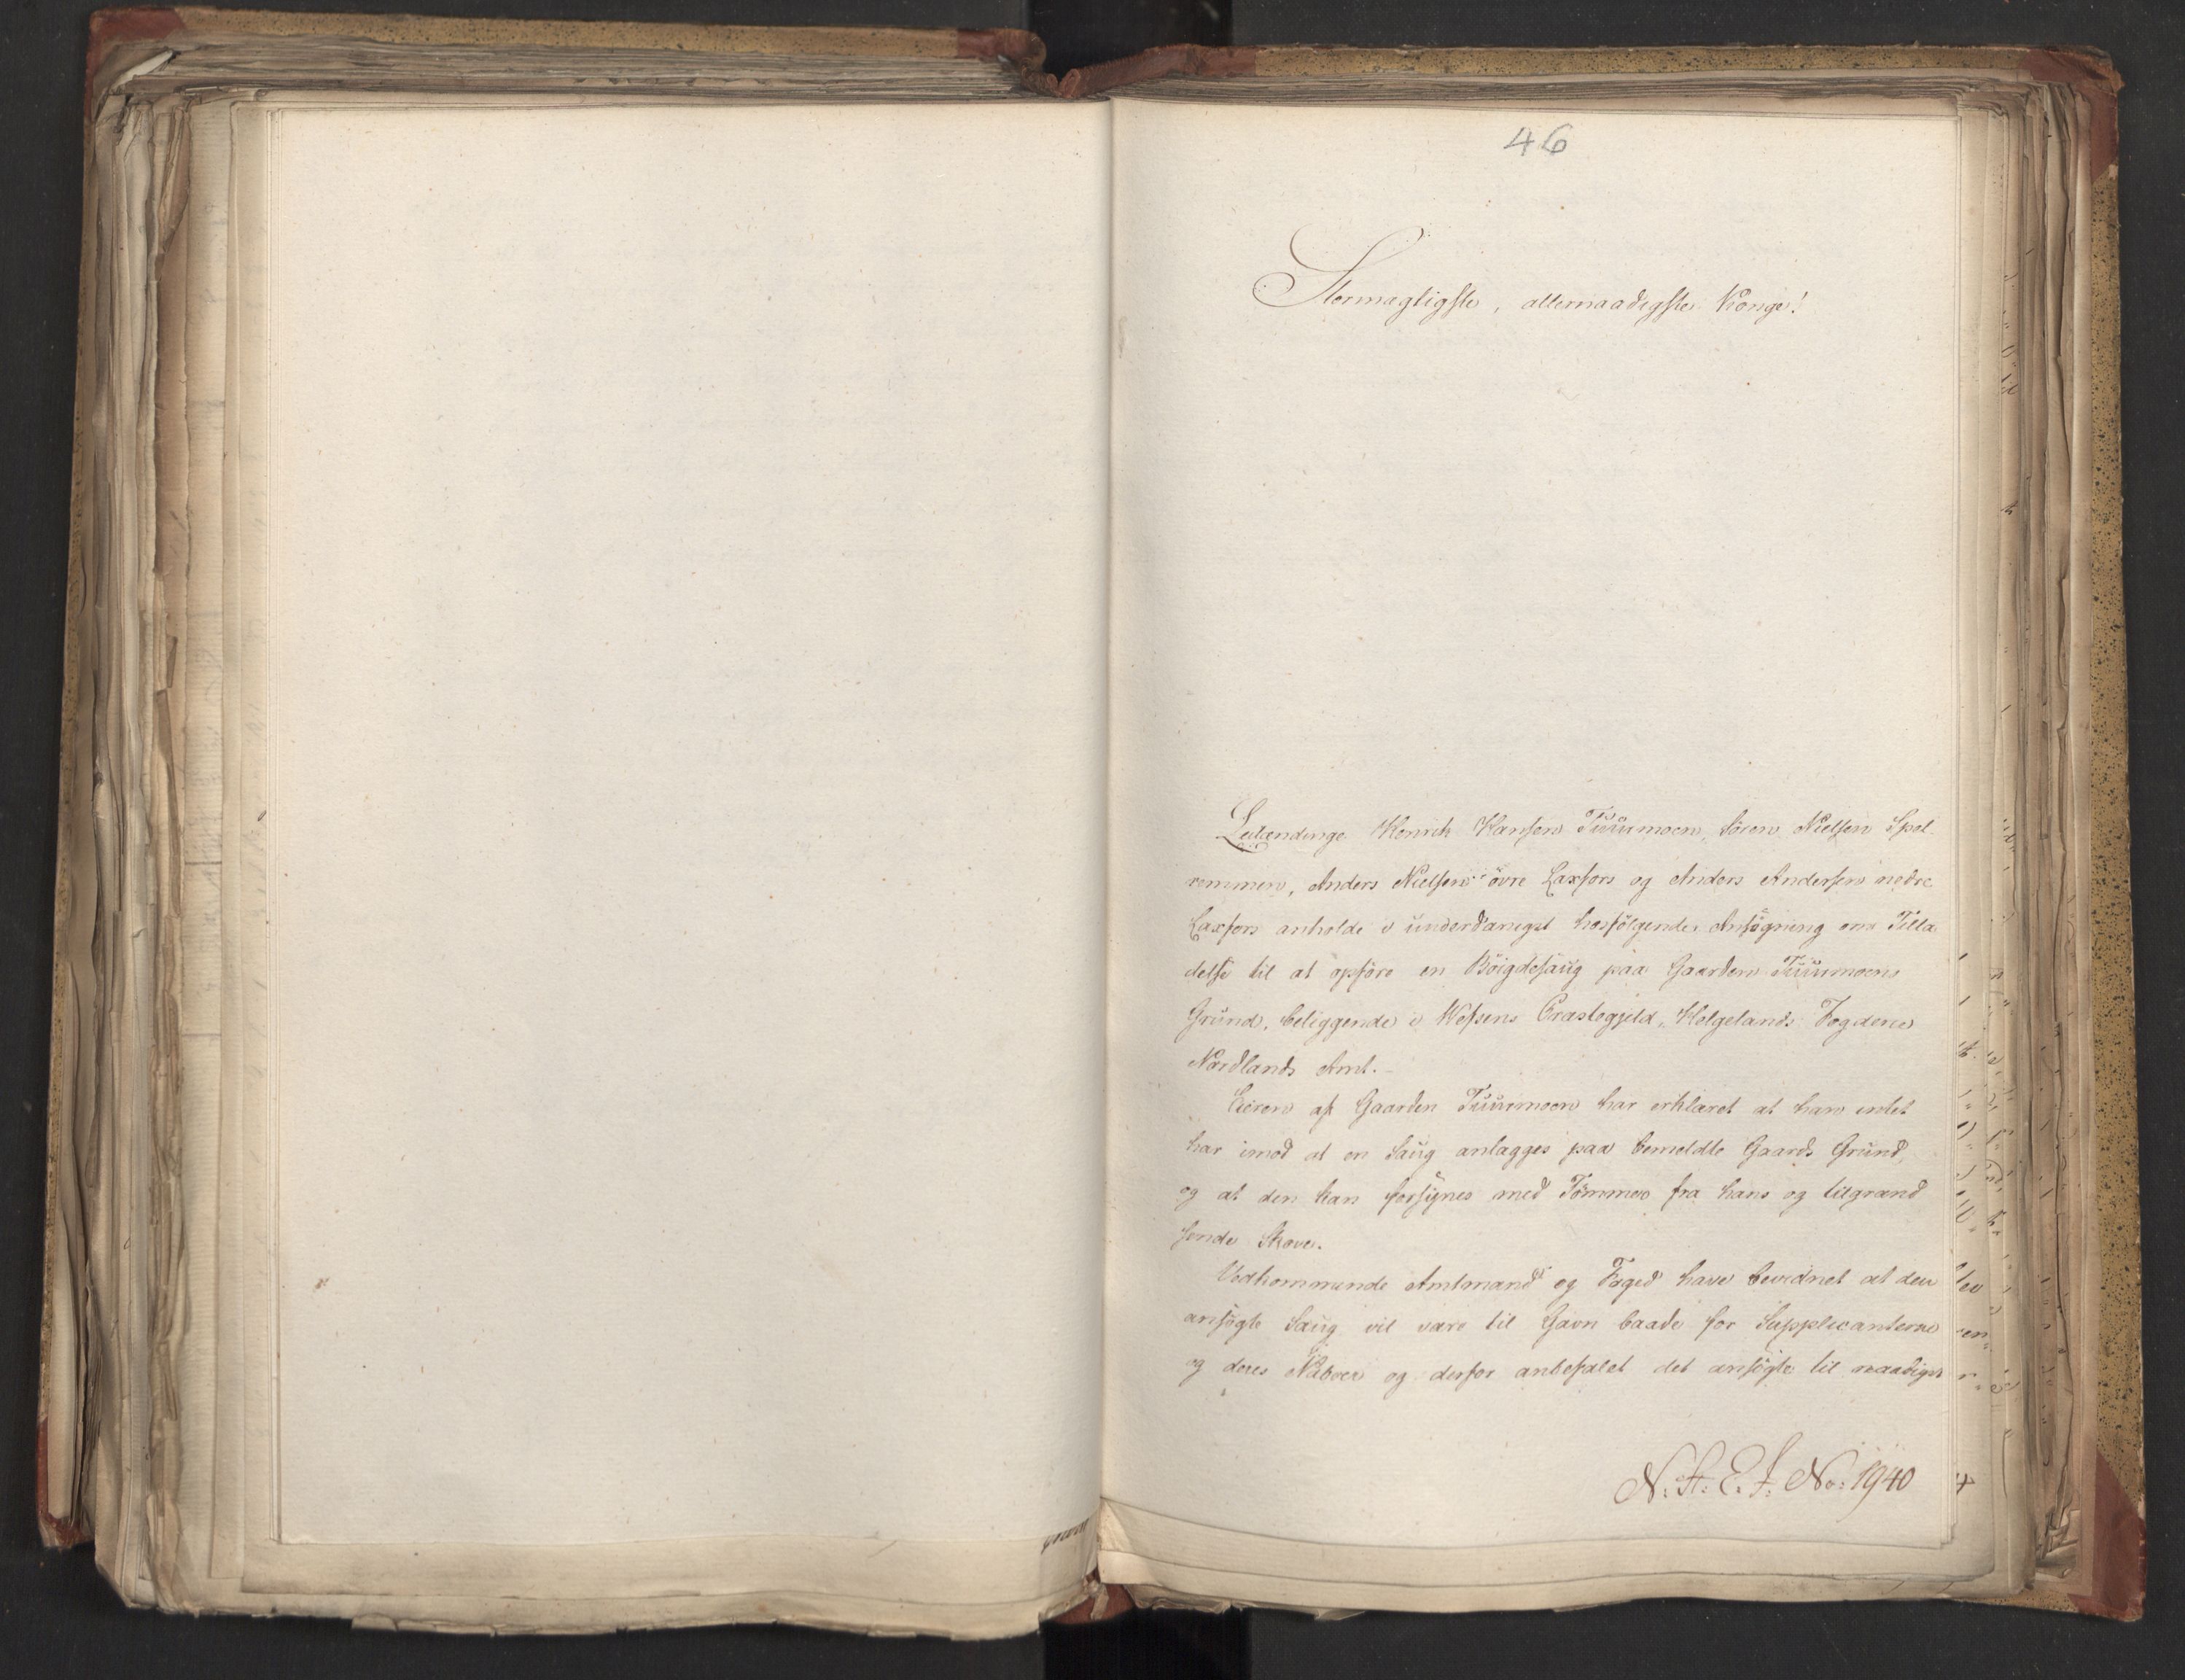 46
Stormægtigste, allernaadigste Konge!
Leilændinge Henrik Hansen Tüürmoen, Sören Nielsen Spel-
remmen, Anders Nielsen övre Laxfors og Anders Andersen nedre
Laxfors anholde i ünderdanigst hosfölgende Ansögning om Tilla
delse til at opföre en Böigdesaüg paa Gaarden Tüürmoens
Gründ, beliggende i Wefsens Præstegjeld, Helgelands Fogderie
Nordlands Amt.-
Eieren af Gaarden Tüürmoen har erklæret at han intet
har imod at en Saüg anlægges paa bemeldte Gaards Gründ,
og at den kan forsÿnes med Tömmer fra hans og tilgrænd
sende Skove.
Vedkommende Amtmand og Foged have bevidnet at den
ansögte Saüg vil være til Gavn baade for Supplicanterne
og deres Naboer og derfor anbefalet det ansögte til naadigst
N: A: E: J: No: 1940